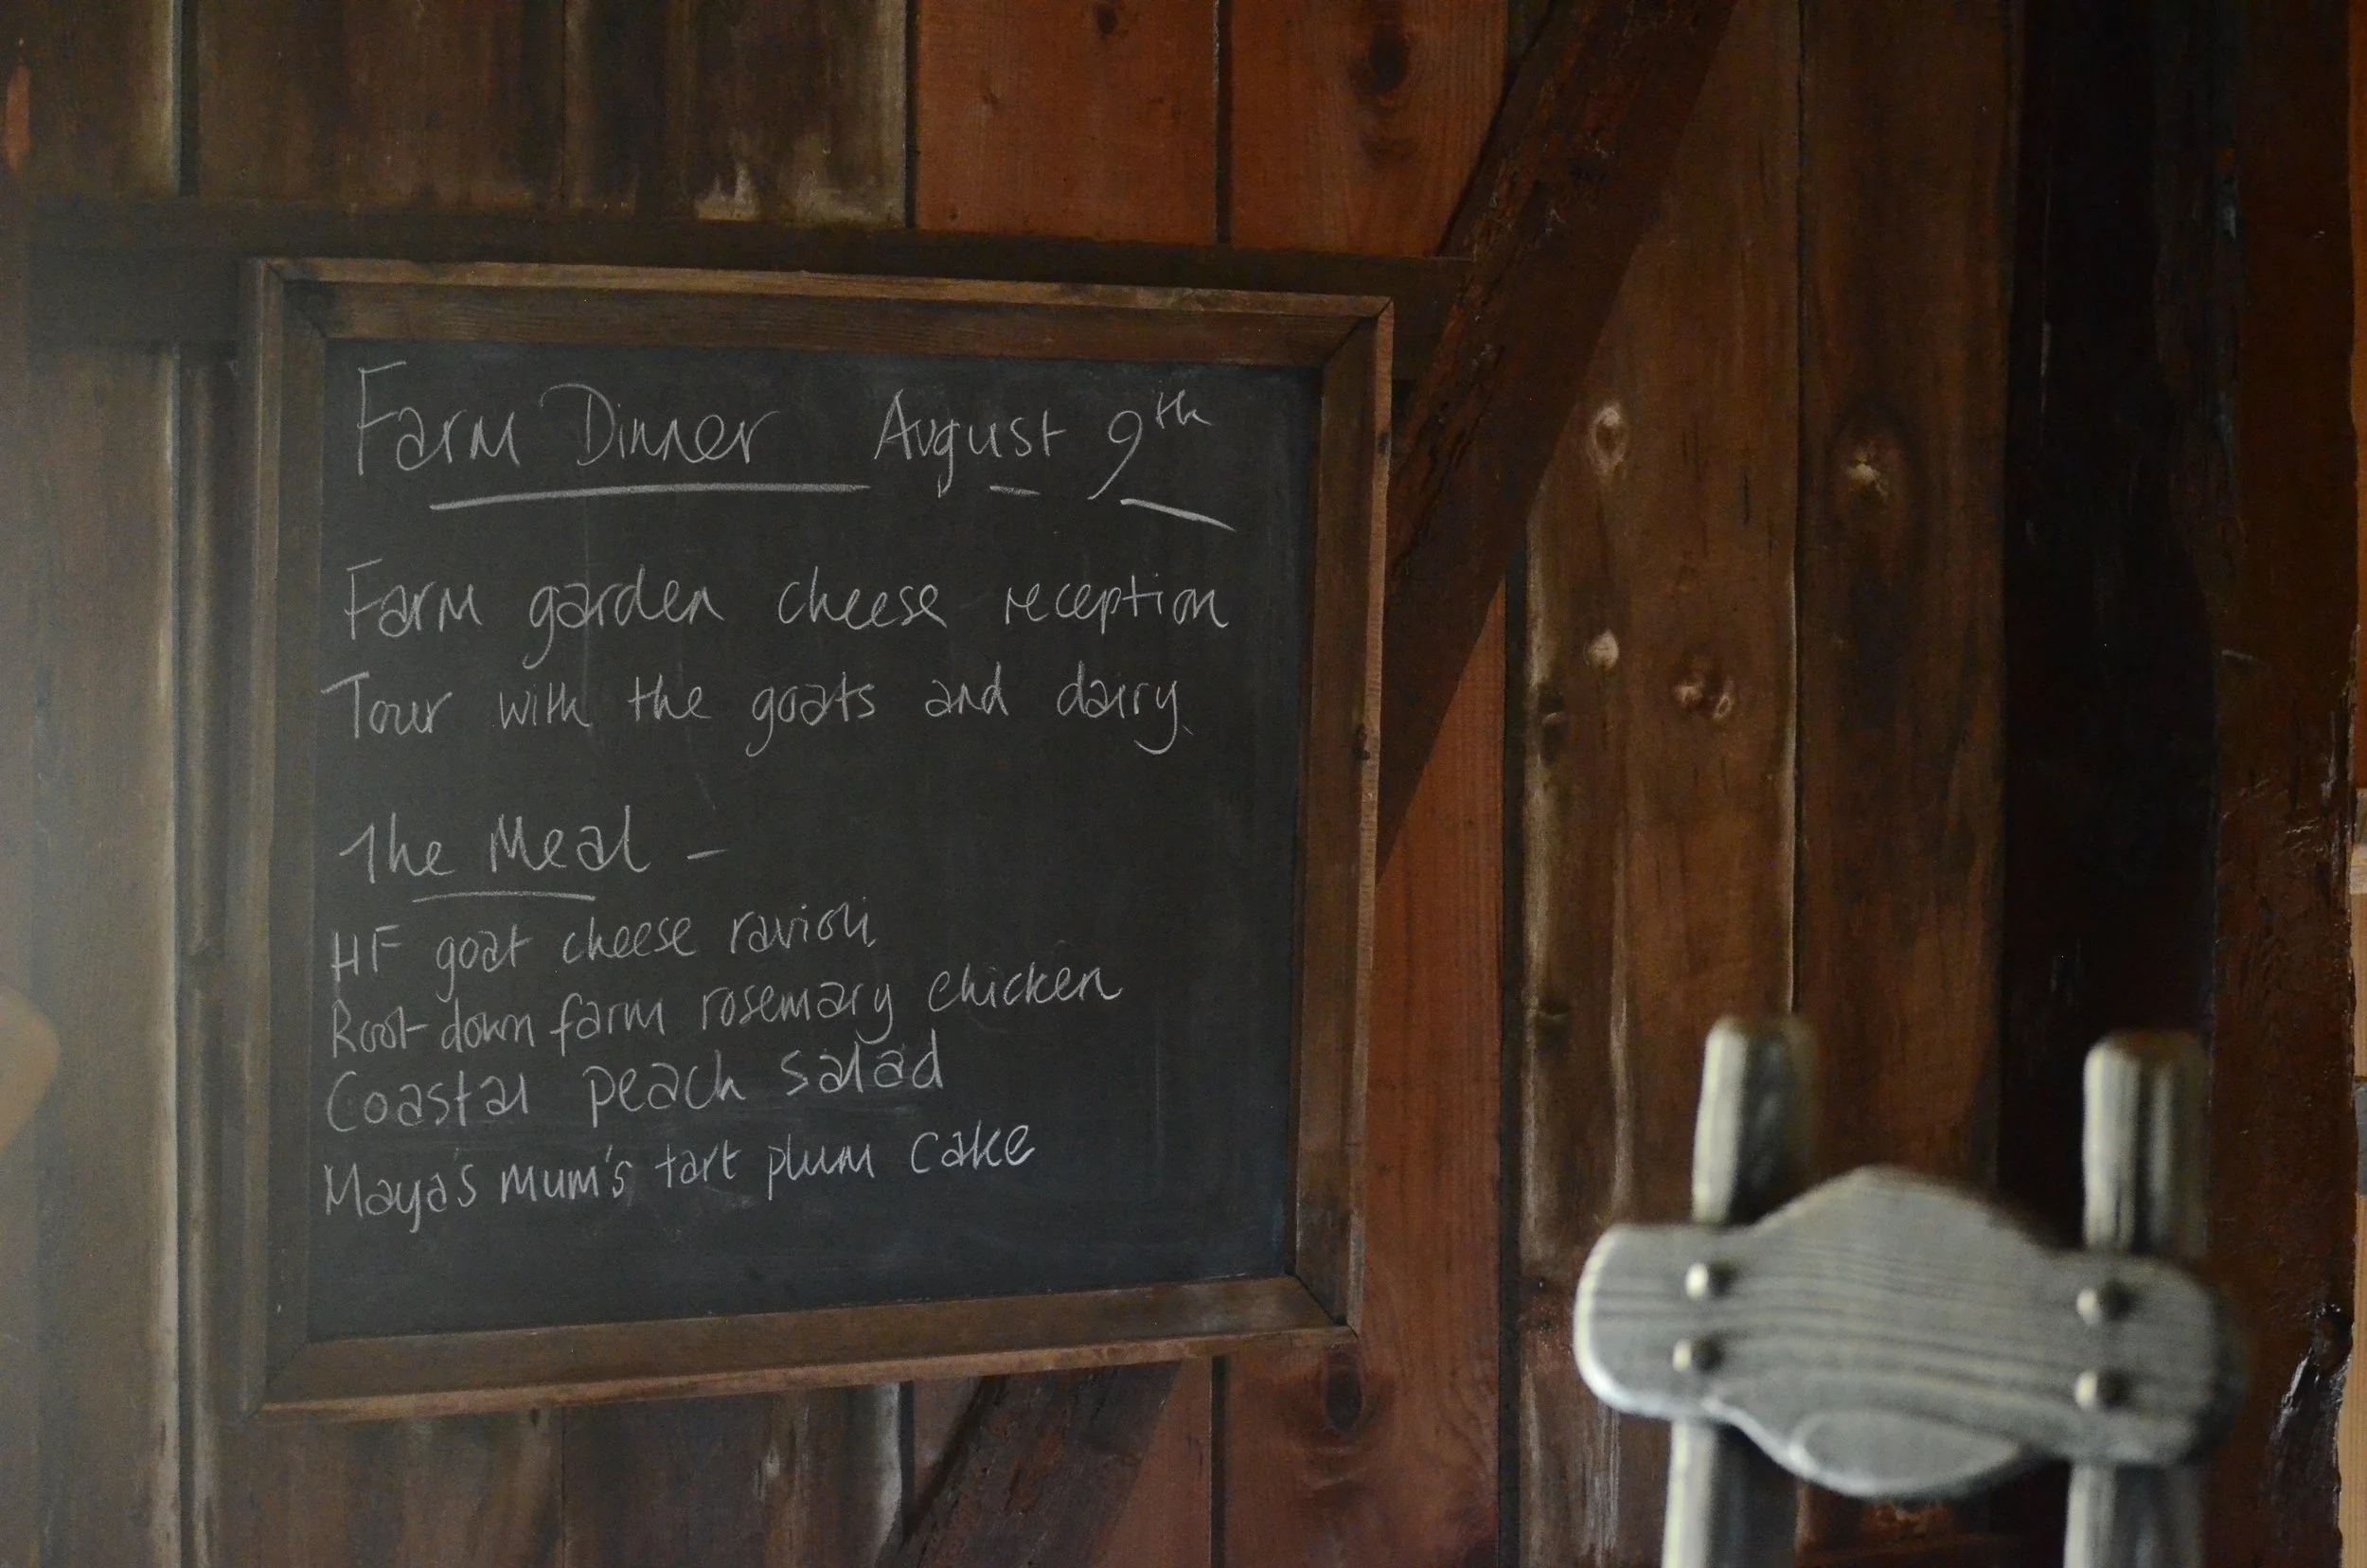 Farm Dinner August 9th
Farm garden cheese reception
Tour with the goats and dairy
The Meal -
HF goat cheese ravioli
Root down farm rosemary chicken
Coastal peach salad
Maya's mum's tart plum cake